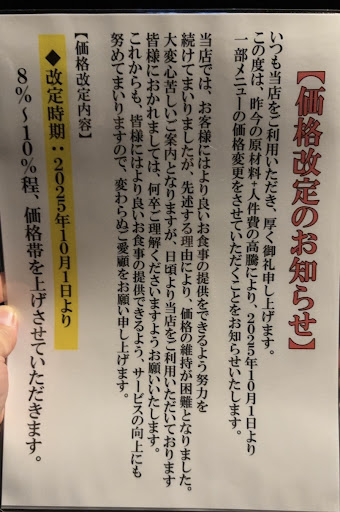 【価格改定のお知らせ】
いつも当店をご利用いただき、厚く御礼申し上げます。
この度は、昨今の原材料+人件費の高騰により、2025年10月1日より
一部メニューの価格変更をさせていただくことをお知らせいたします。
当店では、お客様にはより良いお食事の提供をできるよう努力を
続けてまいりましたが、先述する理由により、価格の維持が困難となりました。
大変心苦しいご案内となりますが、日頃より当店をご利用いただいております
皆様におかれましては、何卒ご理解くださいますようお願いいたします。
これからも、皆様にはより良いお食事の提供できるよう、サービスの向上にも
努めてまいりますので、変わらぬご愛顧をお願い申し上げます。
【価格改定内容】
◆改定時期：2025年10月1日より
8％～10％程、価格帯を上げさせていただきます。